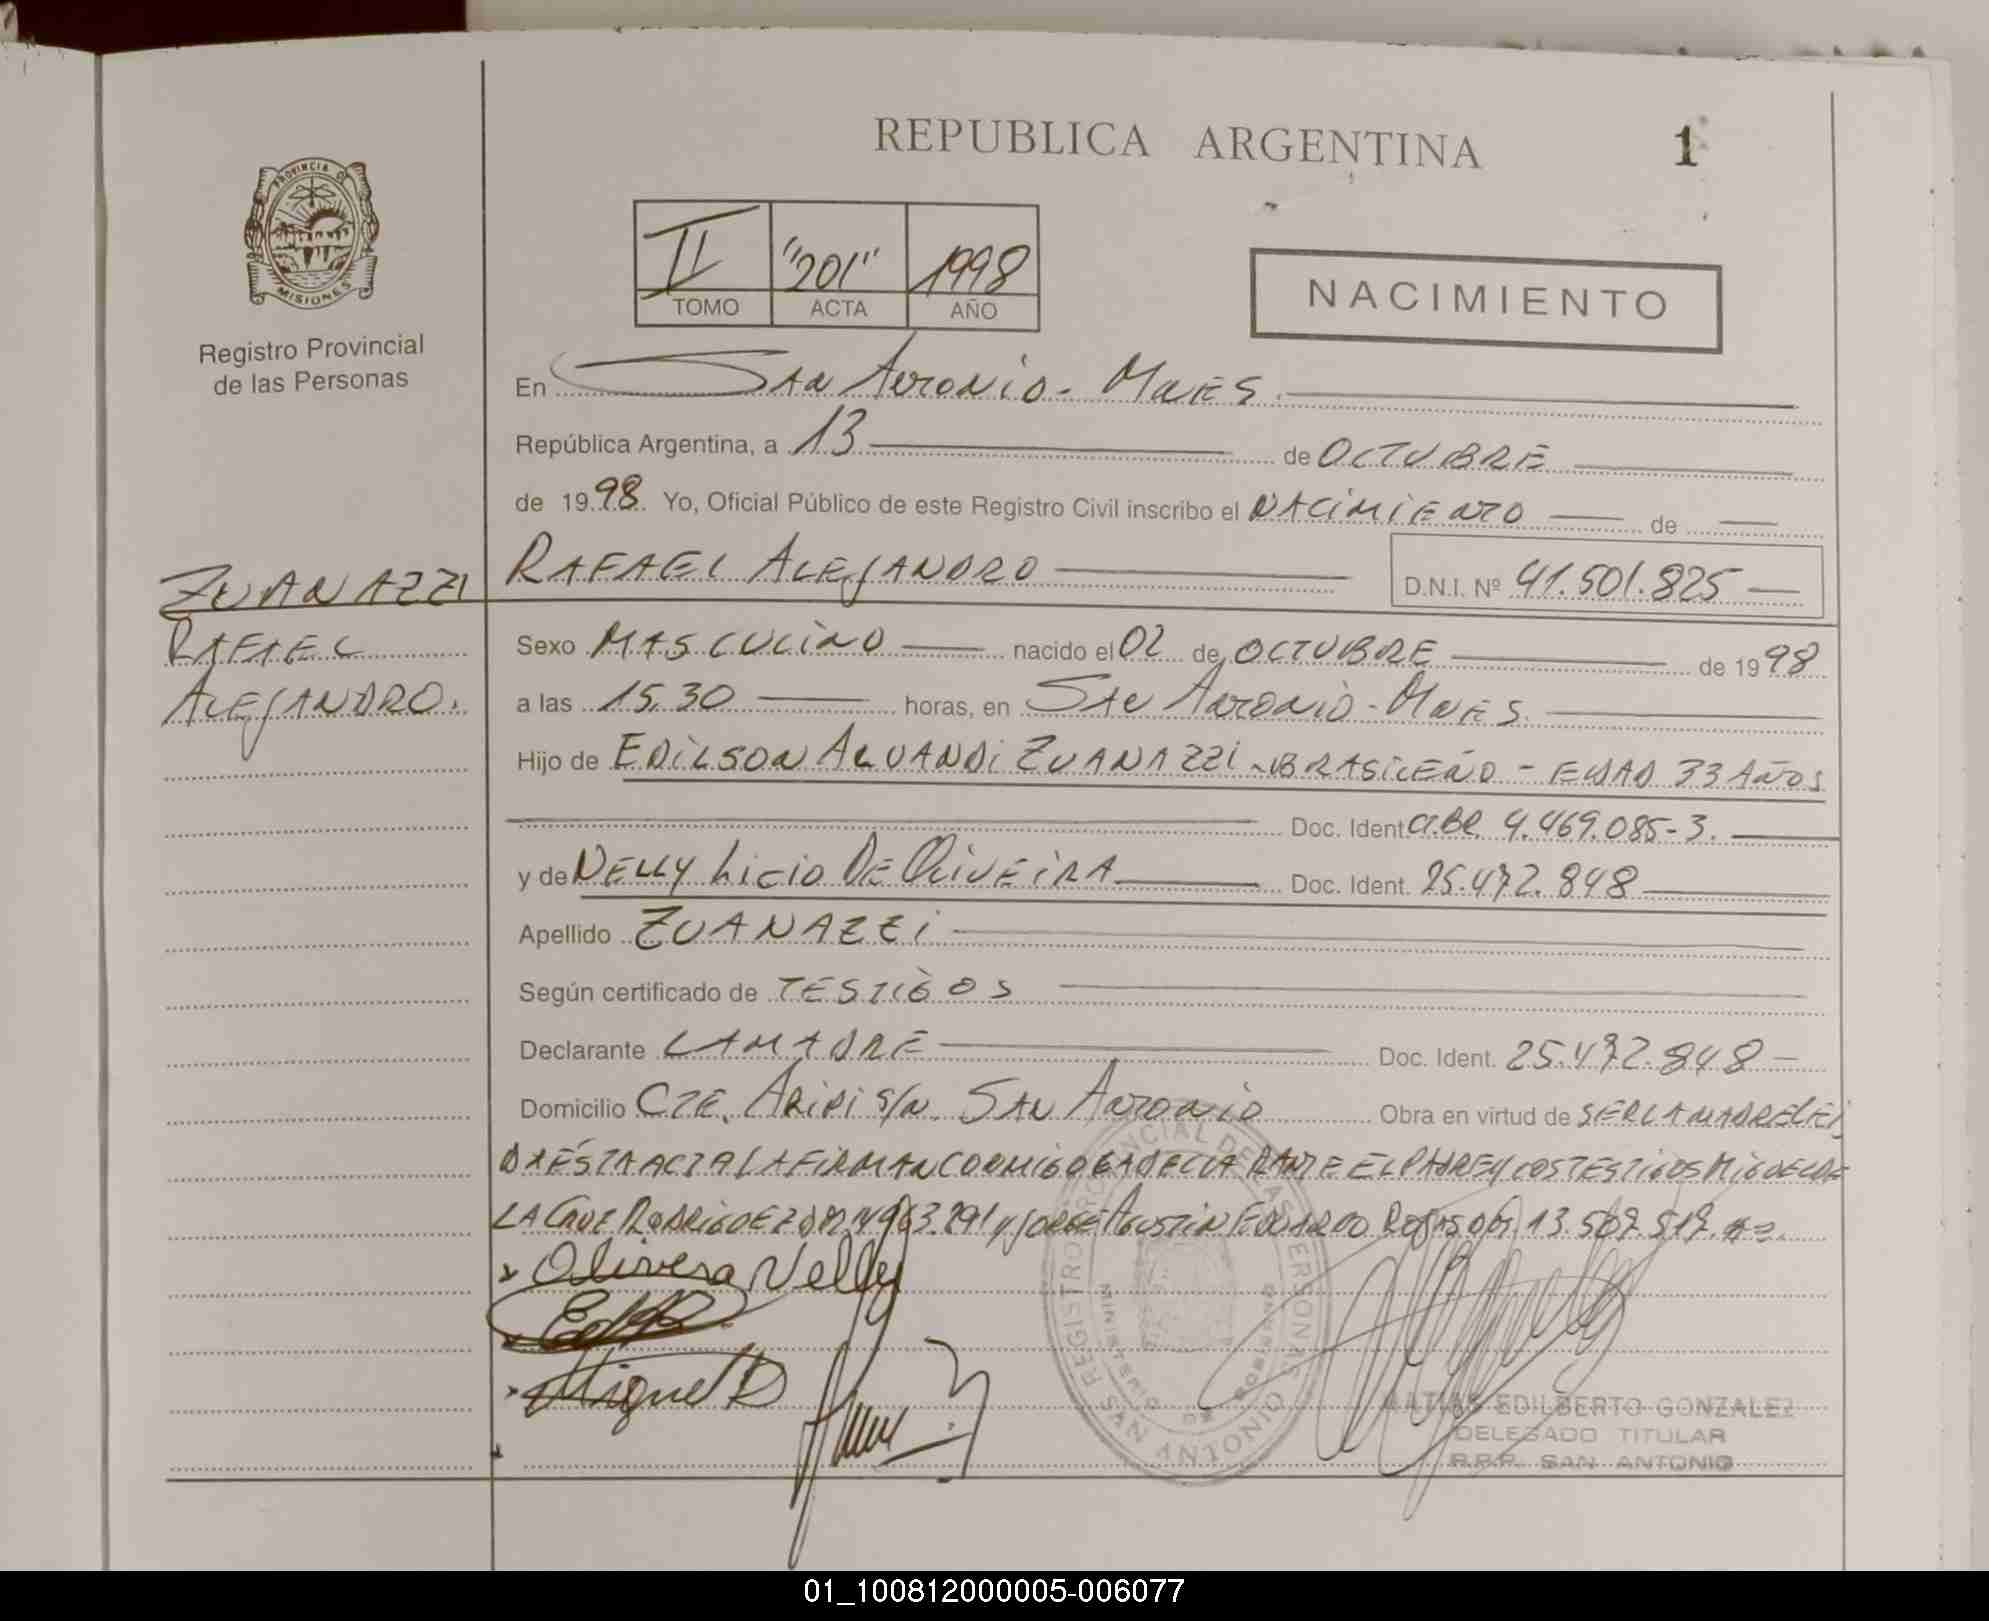 REPUBLICA ARGENTINA 1
PROVINCIA DE
MISIONES
Registro Provincial
de las Personas
II "201" 1998
TOMO ACTA AÑO
NACIMIENTO
En SAN ANTONIO - MNES.
República Argentina, a 13 de OCTUBRE
de 1998. Yo, Oficial Público de este Registro Civil inscribo el NACIMIENTO de
RAFAEL ALEJANDRO D.N.I. Nº 41.501.825
ZUANAZZI
RAFAEL
ALEJANDRO.
Sexo MASCULINO nacido el 02 de OCTUBRE de 1998
a las 15,30 horas, en SAN ANTONIO - MNES.
Hijo de EDILSON ALVANDI ZUANAZZI - BRASILEÑO - EDAD 33 AÑOS
Doc. Ident. 4.469.085-3.
y de NELLY LICIO DE OLIVEIRA Doc. Ident. 25.472.848
Apellido ZUANAZZI
Según certificado de TESTIGOS
Declarante LA MADRE Doc. Ident. 25.472.848
Domicilio CTE. ARIPI S/N. SAN ANTONIO Obra en virtud de SER LA MADRE LEI
DA ÉSTA ACTA LA FIRMAN CONMIGO LA DECLARANTE EL PADRE Y LOS TESTIGOS MIGUEL DE
LA CRUZ RODRIGUEZ Y JORGE AGUSTIN EDUARDO ROJAS 13.507.517.
Olivera Nelly
Miguel D
REGISTRO PROVINCIAL DE LAS PERSONAS
MINISTERIO DE GOBIERNO
SAN ANTONIO
MATIAS EDILBERTO GONZALEZ
DELEGADO TITULAR
R.P.P. SAN ANTONIO
01_100812000005-006077